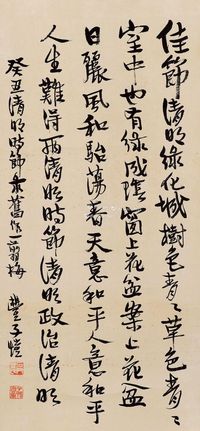 佳節清明綠化城樹色青〻草色青〻
室中也有綠成蔭窗上花盆案上花盆
日麗風和駘蕩春天意和平人意和平
人生難得兩清明時節清明政治清明
癸丑清明時節彔舊作一翦梅 豐子愷